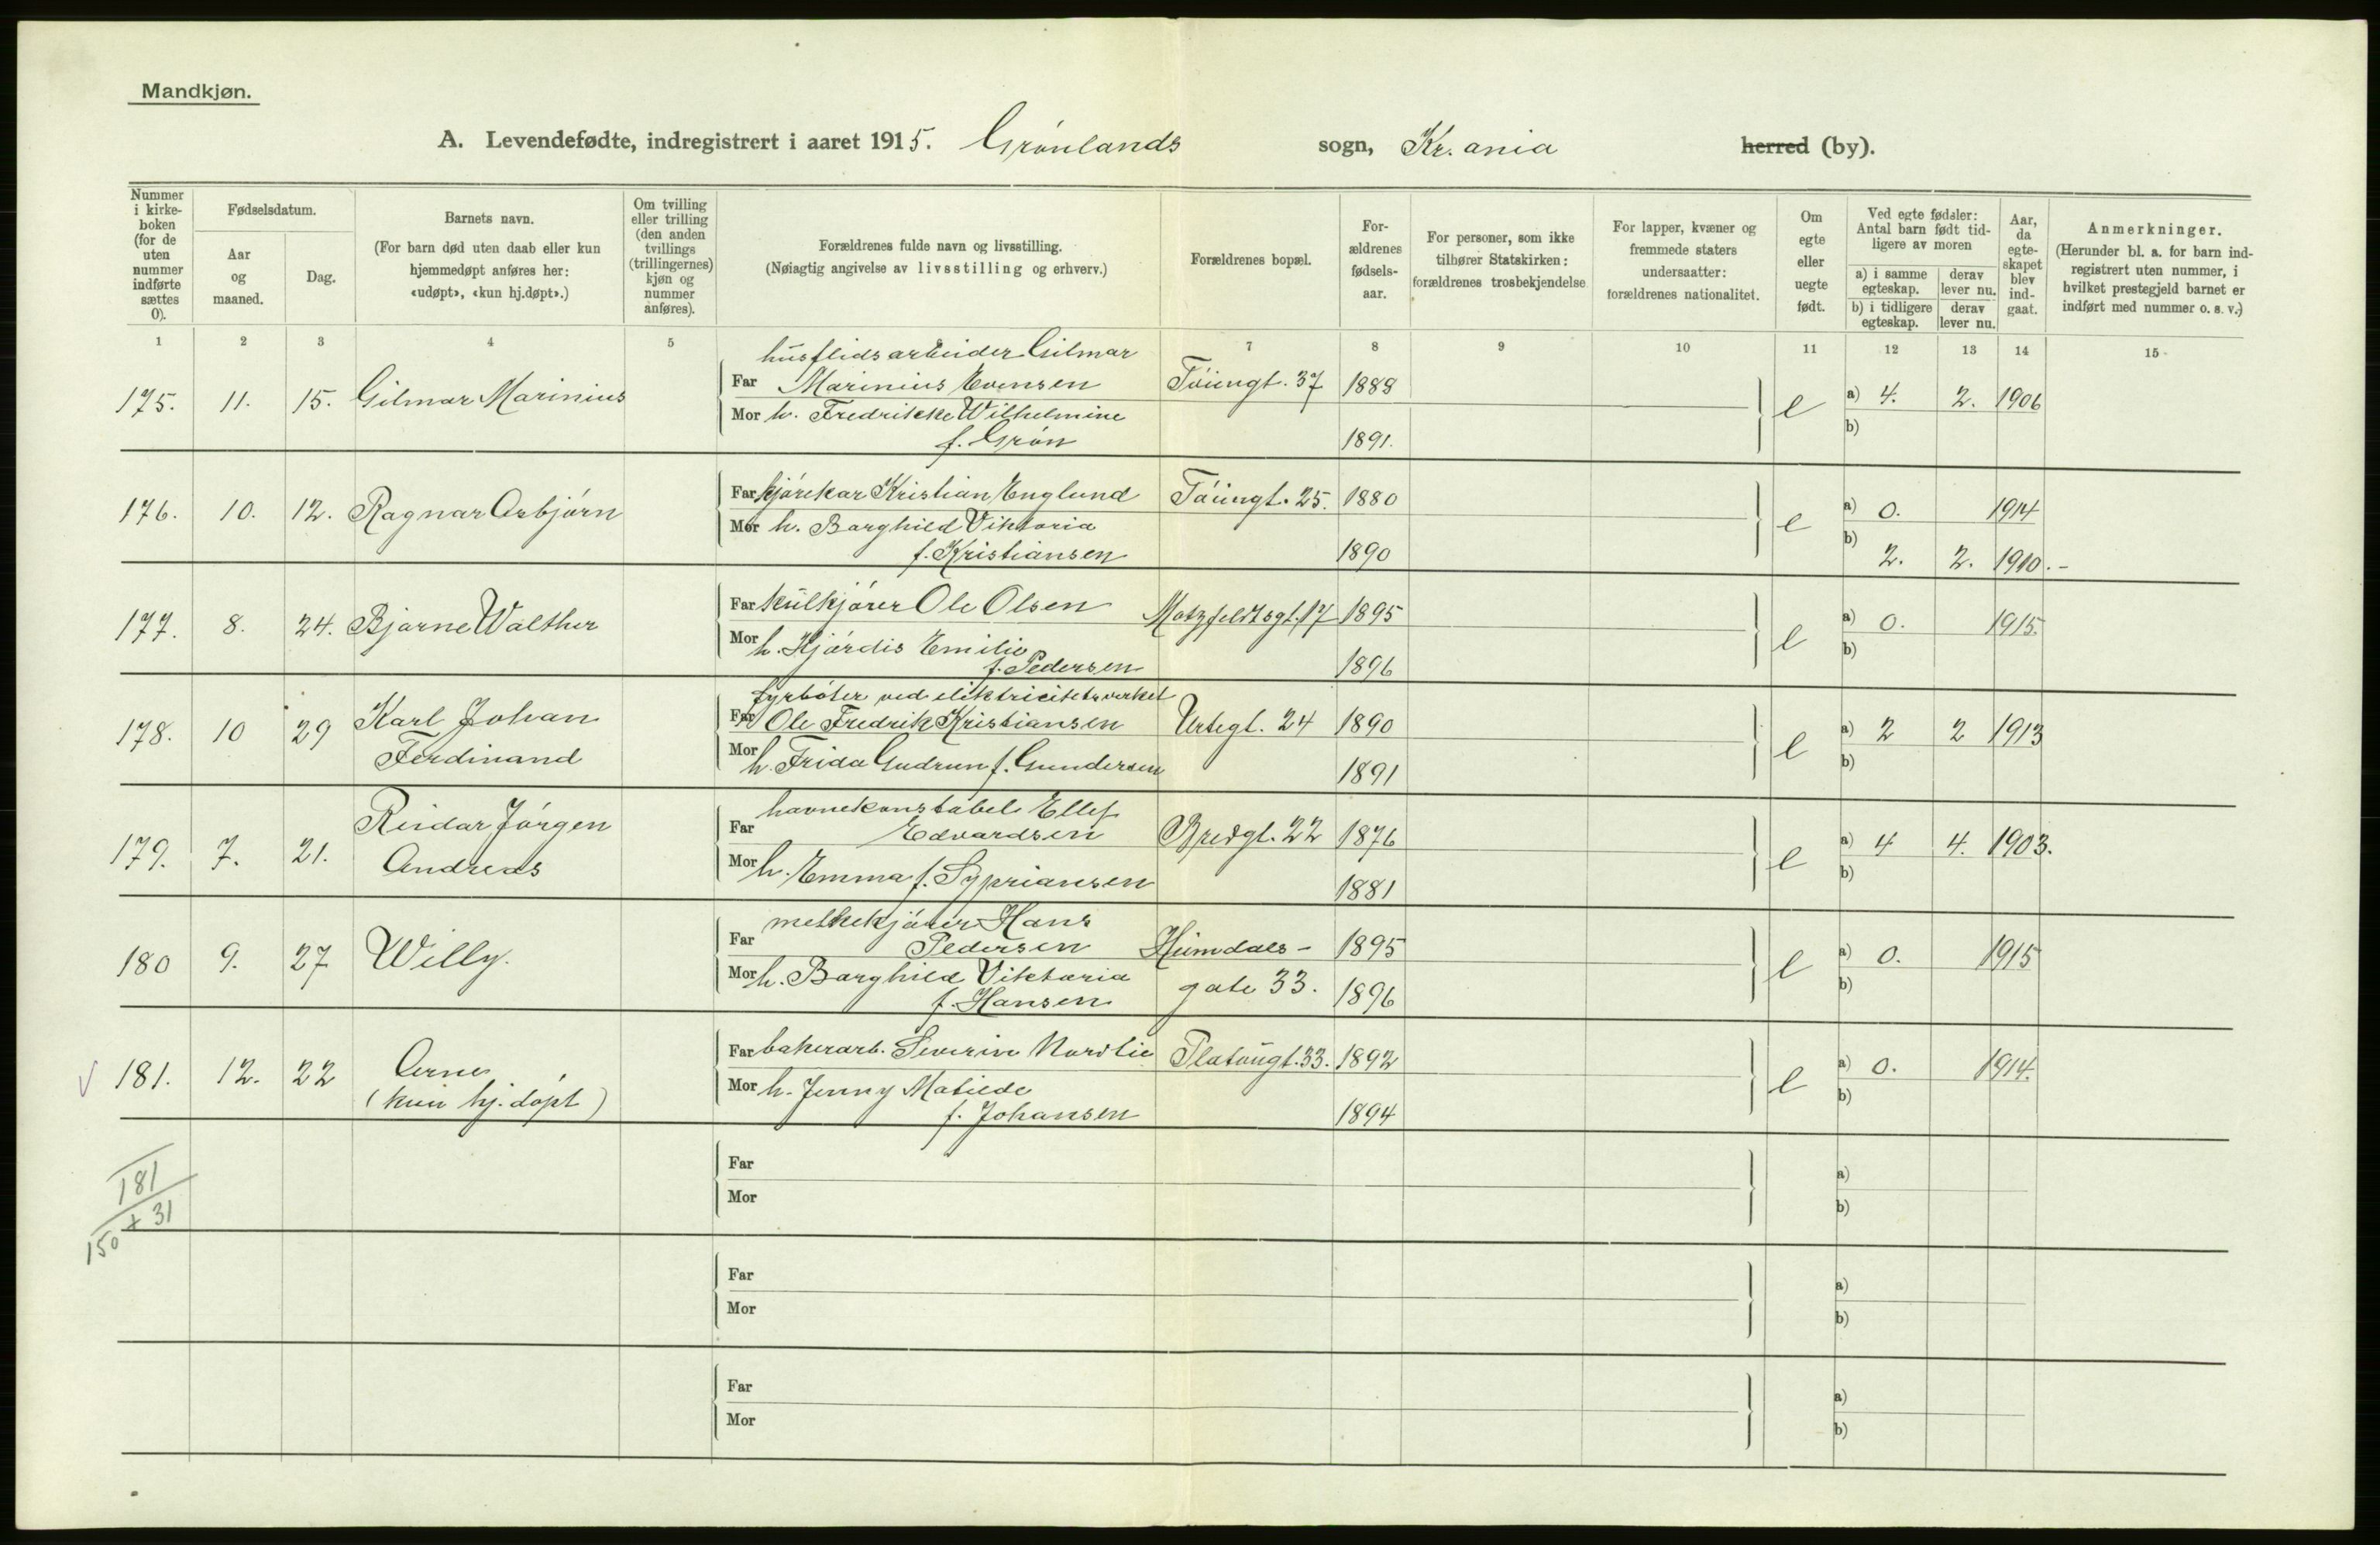 Mandkjøn.
A. Levendefødte, indregistrert i aaret 1915. Grønlands sogn, Kr.ania herred (by).
Nummer i kirkeboken (for de uten nummer indførte sættes 0).
Fødselsdatum.
Aar og maaned.
Dag.
Barnets navn.
(For barn død uten daab eller kun hjemmedøpt anføres her: «udøpt», «kun hj.døpt».)
Om tvilling eller trilling (den anden tvillings (trillingernes) kjøn og nummer anføres).
Forældrenes fulde navn og livsstilling.
(Nøiagtig angivelse av livsstilling og erhverv.)
Forældrenes bopæl.
Forældrenes fødselsaar.
For personer, som ikke tilhører Statskirken: forældrenes trosbekjendelse
For lapper, kvæner og fremmede staters undersaatter: forældrenes nationalitet.
Om egte eller uegte født.
Ved egte fødsler: Antal barn født tidligere av moren
a) i samme egteskap.
derav lever nu.
b) i tidligere egteskap.
derav lever nu.
Aar, da egteskapet blev indgaat.
Anmerkninger.
(Herunder bl. a. for barn indregistrert uten nummer, i hvilket prestegjeld barnet er indført med nummer o. s. v.)
1 2 3 4 5 7 8 9 10 11 12 13 14 15
husflidsarbeider Gilmar
175. 11. 15. Gilmar Marinius Far Marinius Evensen Tøiengt. 37 1888 e a) 4. 2. 1906
Mor h. Fredrikke Wilhelmine b)
f. Grøn 1891.
176. 10. 12. Ragnar Asbjørn Far kjørekar Kristian Englund Tøiengt. 25. 1880 e a) 0. 1914
Mor h. Borghild Viktoria b) 2. 2. 1910.-
f. Kristiansen 1890
177. 8. 24. Bjarne Walther Far kulkjører Ole Olsen Motzfeldtsgt. 17 1895 e a) 0. 1915.
Mor h. Hjørdis Emilie b)
f. Pedersen 1896
fyrbøter ved elektricitetsverket
178. 10 29 Karl Johan Far Ole Fredrik Kristiansen Urtegt. 24 1890 e a) 2 2 1913
Ferdinand Mor h. Frida Gudrun f. Gundersen 1891 b)
havnekonstabel Ellef
179. 7. 21. Reidar Jørgen Far Edvardsen Bredgt. 22 1876 e a) 4 4. 1903.
Andreas Mor h. Emma f. Sypriansen 1881 b)
melkekjører Hans
180 9. 27 Willy. Far Pedersen Heimdals- 1895 e a) 0. 1915
Mor h. Borghild Viktoria gate 33. b)
f. Hansen 1896
181. 12. 22 Arne Far bakerarb. Severin Nordlie Platougt. 33. 1892 e a) 0. 1914.
(kun hj. døpt) Mor h. Jenny Matilde b)
f. Johansen 1894
181
+ 31
150
Far a)
Mor b)
Far a)
Mor b)
Far a)
Mor b)